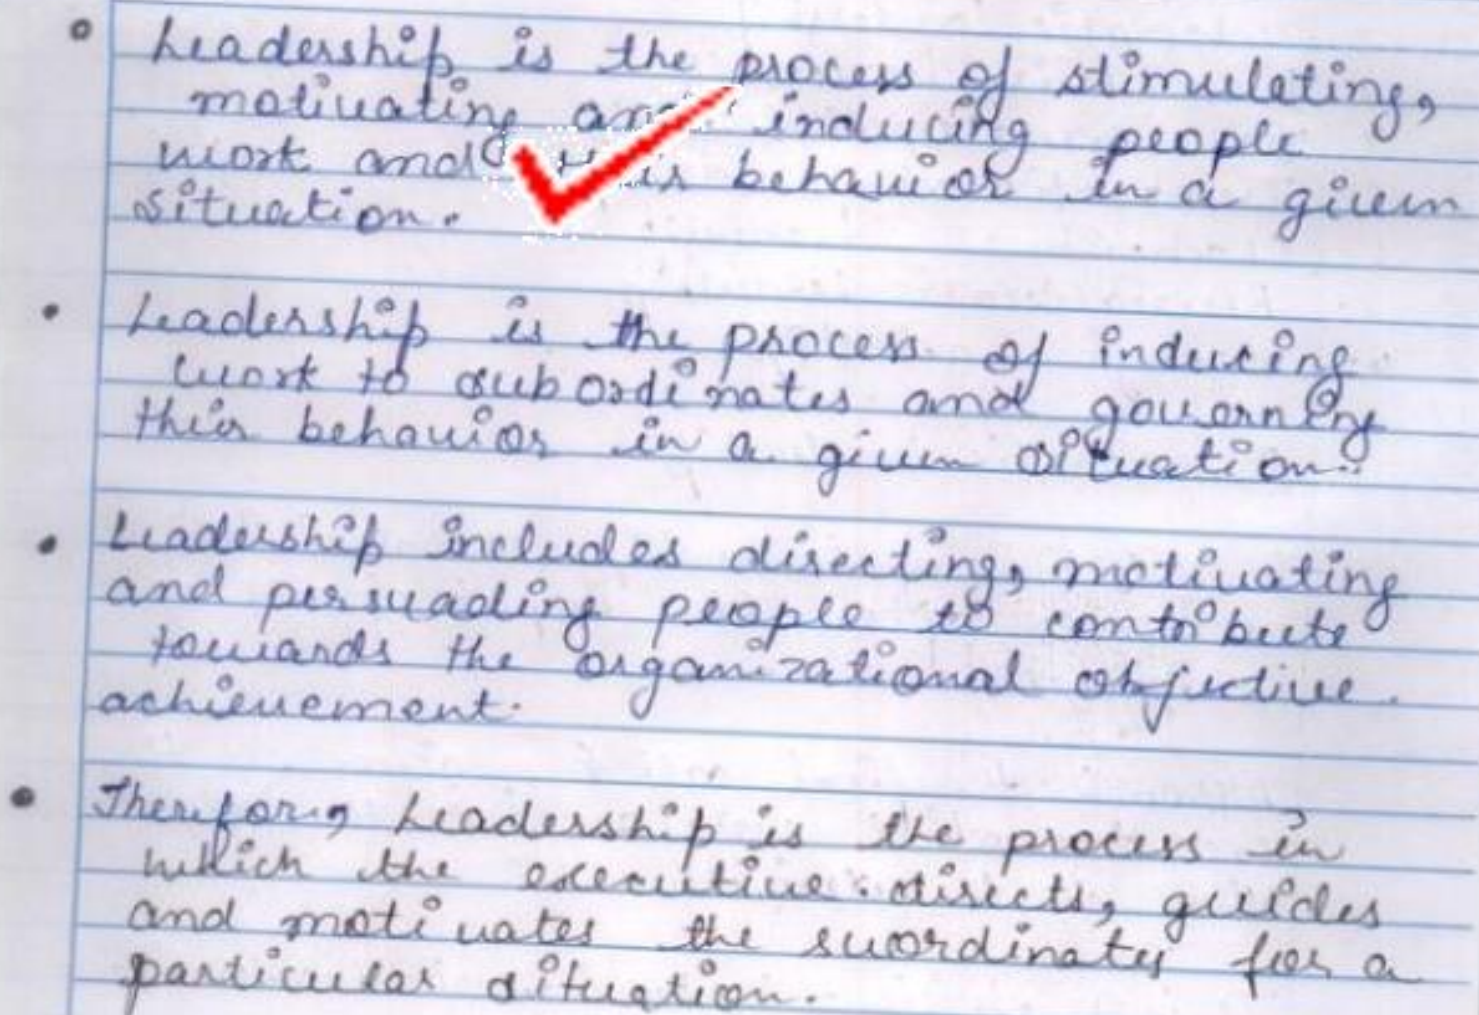 Leadership is the process of stimulating,
motivating and inducing people
work and behavior in a given
situation.
Leadership is the process of inducing
work to subordinates and governing
their behavior in a given situation.
Leadership includes directing, motivating
and persuading people to contribute
towards the organizational objective
achievement.
Therefore, Leadership is the process in
which the executive directs, guides
and motivates the suordinates for a
particular situation.